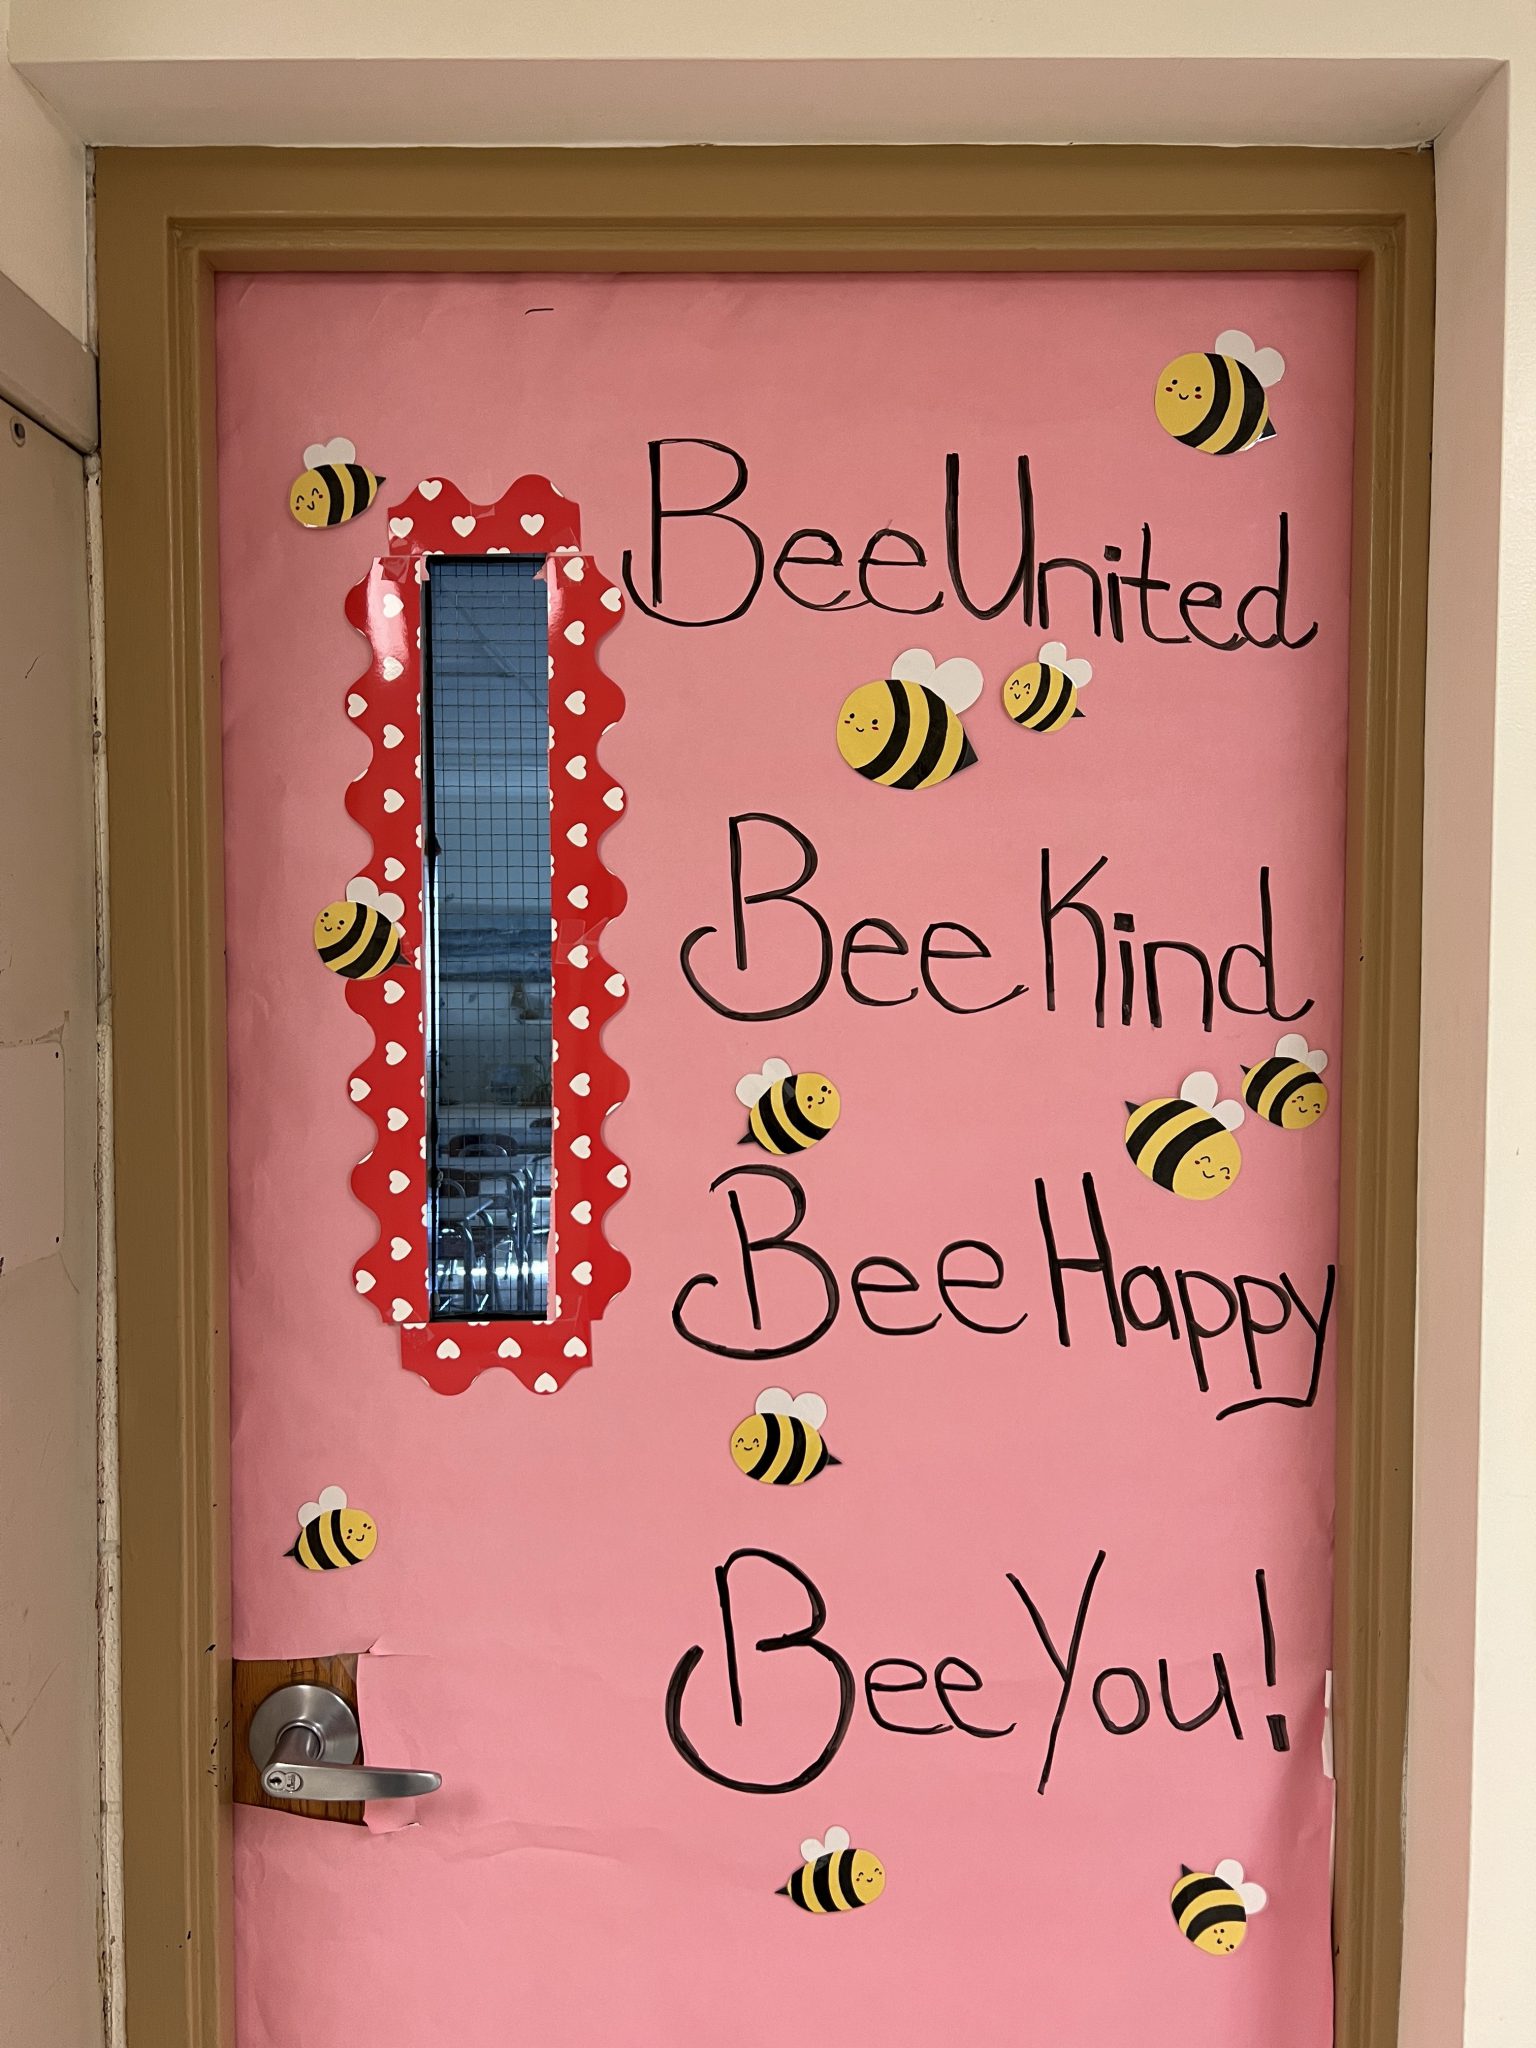 Bee United
Bee Kind
Bee Happy
Bee You!